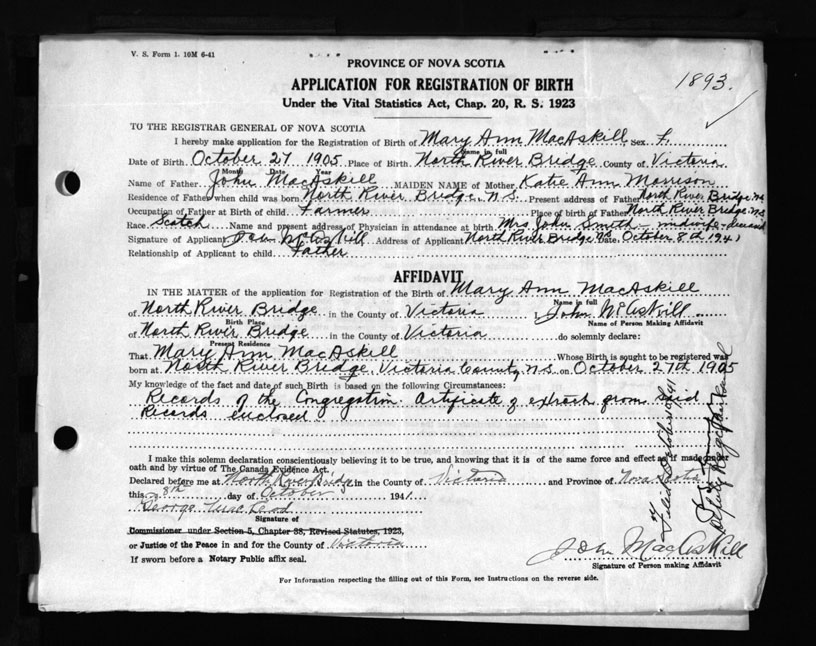 V. S. Form 1. 10M 6-41
PROVINCE OF NOVA SCOTIA
APPLICATION FOR REGISTRATION OF BIRTH
1893.
Under the Vital Statistics Act, Chap. 20, R. S. 1923
TO THE REGISTRAR GENERAL OF NOVA SCOTIA
I hereby make application for the Registration of Birth of Mary Ann MacAskill Sex F.
Name in full
Date of Birth October 27 1905 Place of Birth North River Bridge County of Victoria
Month Date Year
Name of Father John MacAskill MAIDEN NAME of Mother Katie Ann Morrison
Residence of Father when child was born North River Bridge, N.S. Present address of Father North River Bridge N.S.
Occupation of Father at Birth of child Farmer Place of birth of Father North River Bridge N.S.
Race Scotch Name and present address of Physician in attendance at birth Mrs John Smith - midwife - deceased
Signature of Applicant John McAskill Address of Applicant North River Bridge N.S. Date October 8th 1941
Relationship of Applicant to child Father
AFFIDAVIT
IN THE MATTER of the application for Registration of the Birth of Mary Ann MacAskill
Name in full
of North River Bridge in the County of Victoria I, John McAskill
Birth Place Name of Person Making Affidavit
of North River Bridge in the County of Victoria do solemnly declare:
Present Residence
That Mary Ann MacAskill Whose Birth is sought to be registered was
born at North River Bridge, Victoria County, N.S. on October 27th 1905
My knowledge of the fact and date of such Birth is based on the following Circumstances:
Records of the Congregation. Certificate of extract from said
Records enclosed.
I make this solemn declaration conscientiously believing it to be true, and knowing that it is of the same force and effect as if made under
oath and by virtue of The Canada Evidence Act.
Declared before me at North River Bridge in the County of Victoria and Province of Nova Scotia
this 8th day of October 1941
George MacLeod
Signature of
Commissioner under Section 5, Chapter 38, Revised Statutes, 1923,
or Justice of the Peace in and for the County of Victoria
If sworn before a Notary Public affix seal.
John MacAskill
Signature of Person making Affidavit
For Information respecting the filling out of this Form, see Instructions on the reverse side.
Filed October
Deputy Registrar General